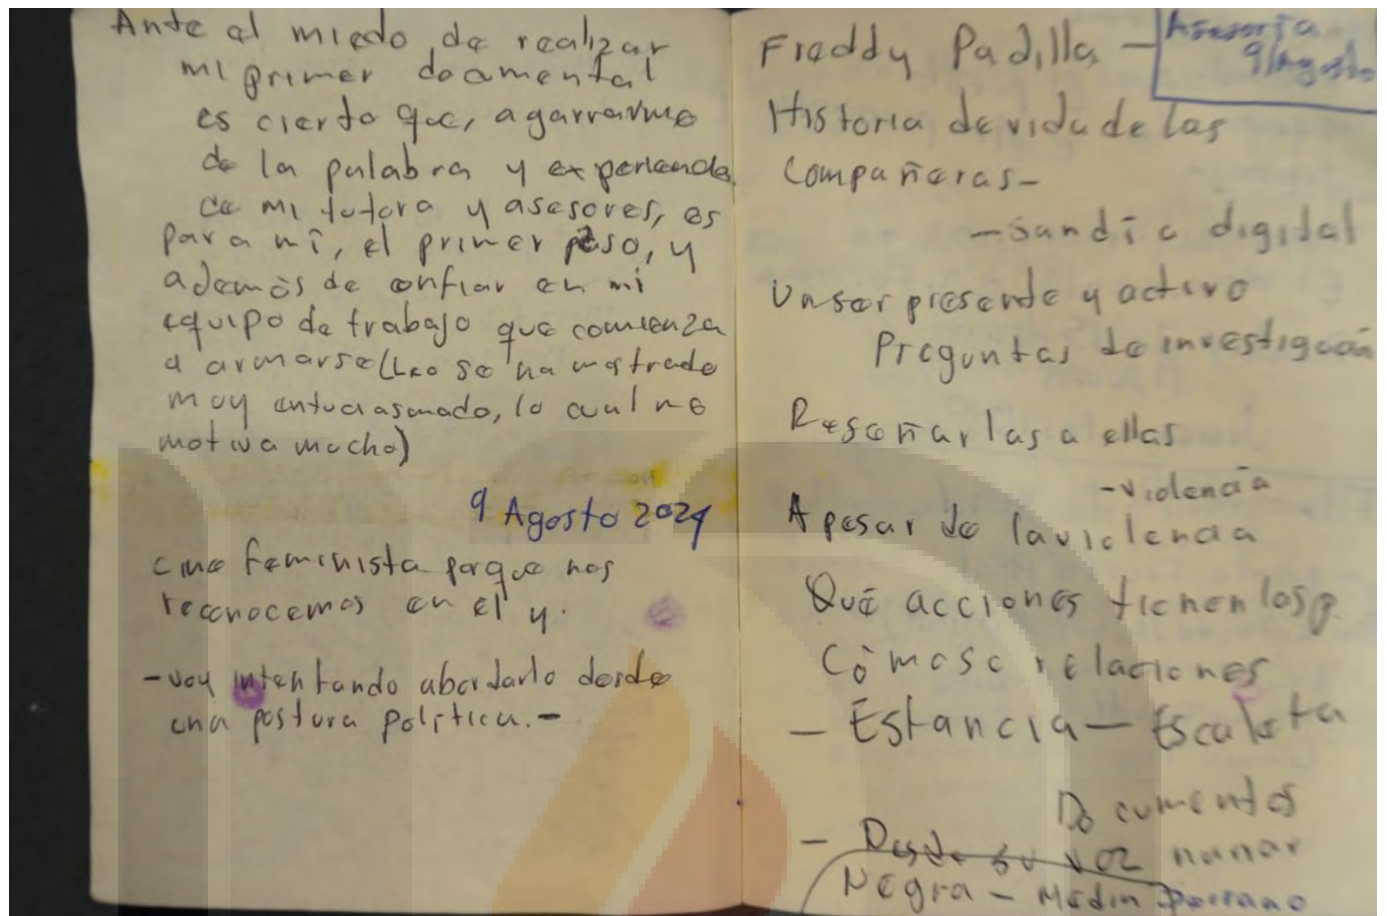 Ante el miedo de realizar
mi primer documental
es cierto que, agarrarme
de la palabra y experiencia
de mi tutora y asesores, es
para mí, el primer paso, y
además de confiar en mi
equipo de trabajo que comienza
a armarse (Leo se ha mostrado
muy entuciasmado, lo cual me
motiva mucho)
9 Agosto 2024
cine feminista porque nos
reconocemos en el y.
- voy intentando abordarlo desde
una postura política.-
Asesoría
9/Agosto
Freddy Padilla -
Historia de vida de las
Compañeras-
- Sandía digital
Un ser presente y activo
Preguntas de investigación
Reseñarlas a ellas
-violencia
A pesar de la violencia
Qué acciones tienen los p.
Cómo se relaciones
- Estancia - Escaleta
Documentos
- Desde su voz narrar
Negra -